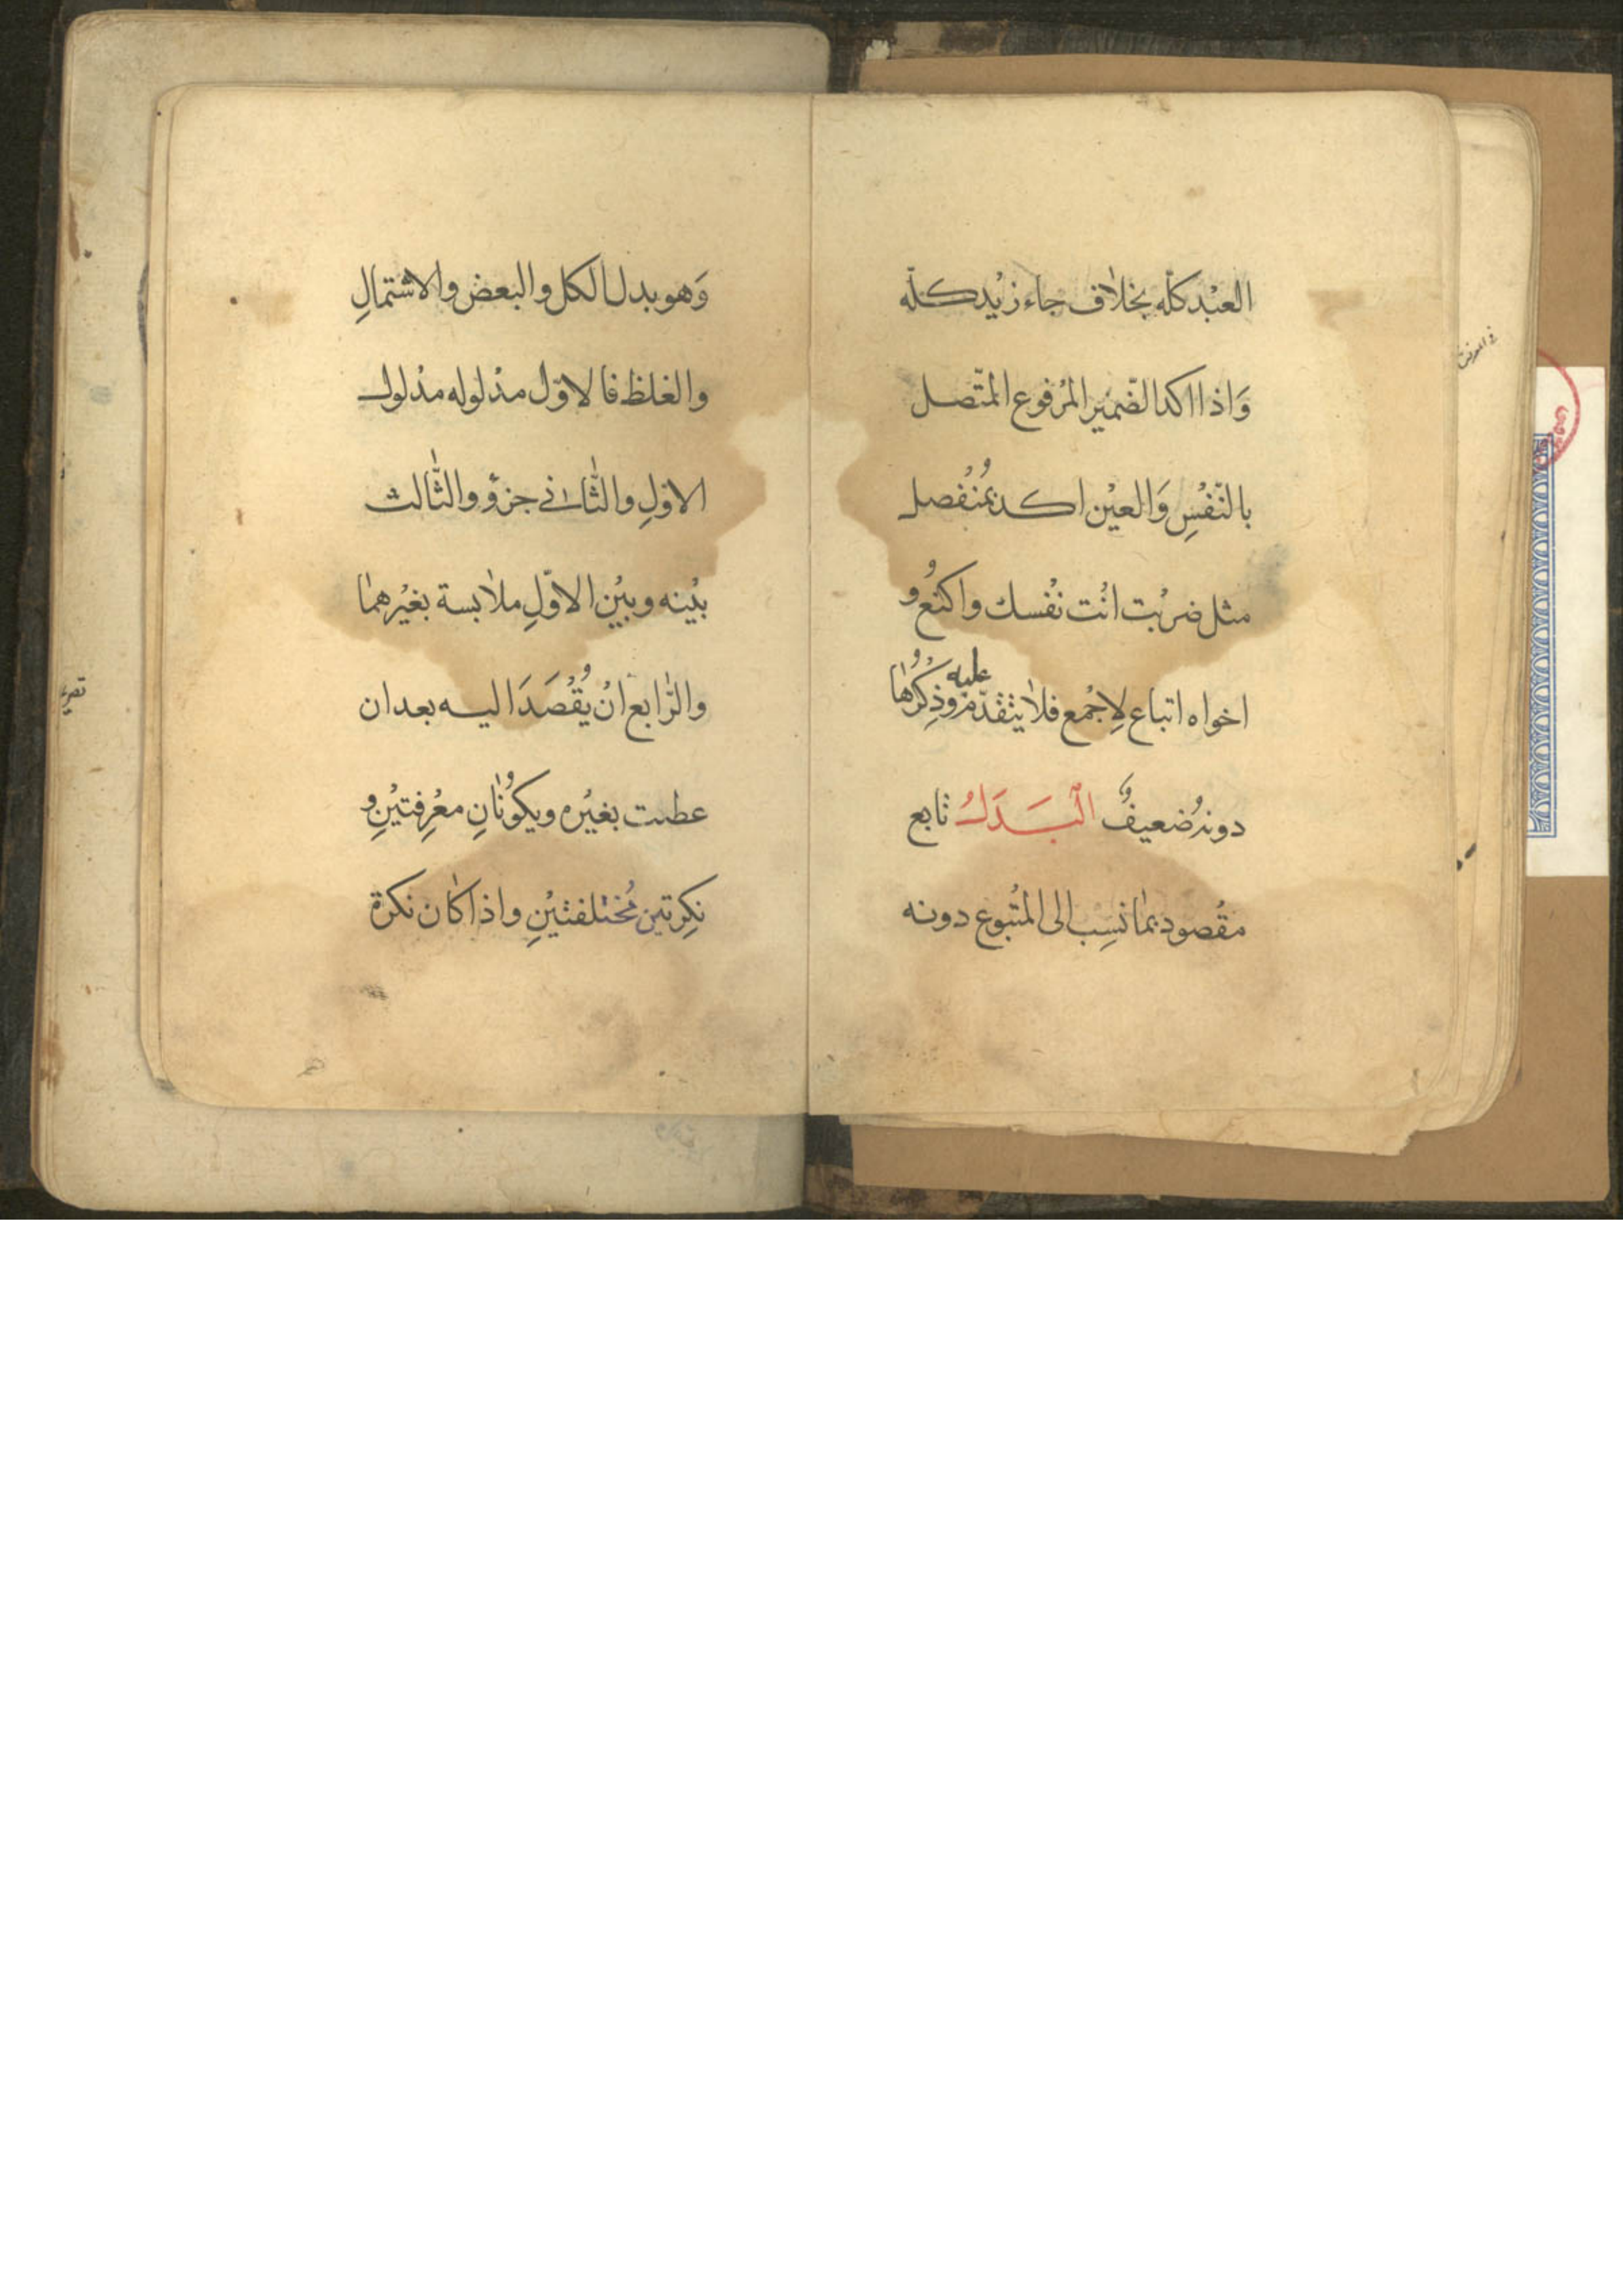 العبْد كلّه بخلاف جاء زيْد كلّه
وَاذا اكد الضّمير المرْفوع المتّصل
بالنّفْسِ وَالعيْن اكد بمُنْفصل
مثل ضربْت انْت نفْسك واكتعُ و
اخواه اتباع لِاجْمع فلا يتقدّم عليه وذِكْرُها
دونهُ ضعيفٌ الْبَدَلُ تابع
مقْصود بما نسِب الى المتْبوع دونه
وَهو بدل الكل والبعض والاشتمالِ
والغلط فالاوّل مدْلوله مدْلول
الاوّلِ والثّاني جزؤه والثّالث
بيْنه وبيْن الاوّلِ ملابسة بغيْرهما
والرّابع انْ يُقْصَدَ اليه بعد ان
غلطت بغيْره ويكونانِ معْرِفتيْنِ و
نكِرتين مُختلفتيْنِ واذا كان نكرة